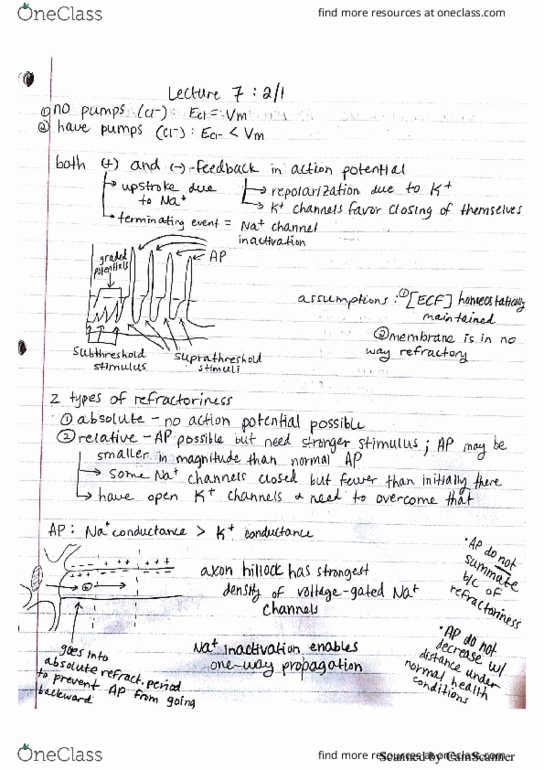 OneClass
find more resources at oneclass.com
Lecture 7 : 2/1
① no pumps (Cl⁻) : ECl = Vm
② have pumps (Cl⁻) : ECl⁻ < Vm
both (+) and (-)-feedback in action potential
→ upstroke due to Na⁺
→ repolarization due to K⁺
→ K⁺ channels favor closing of themselves
• terminating event = Na⁺ channel inactivation
graded potentials
AP
Subthreshold stimulus
Suprathreshold stimuli
assumptions : ① [ECF] homeostatically maintained
② membrane is in no way refractory
2 types of refractoriness
① absolute - no action potential possible
② relative - AP possible but need stronger stimulus ; AP may be
smaller in magnitude than normal AP
→ some Na⁺ channels closed but fewer than initially there
→ have open K⁺ channels & need to overcome that
AP : Na⁺ conductance > K⁺ conductance
axon hillock has strongest
density of voltage-gated Na⁺
channels
• AP do not
summate
b/c of
refractoriness
goes into
absolute refract. period
to prevent AP from going
backward
Na⁺ inactivation enables
one-way propagation
• AP do not
decrease w/
distance under
normal health
conditions
OneClass
find more resources at oneclass.com
Scanned by CamScanner